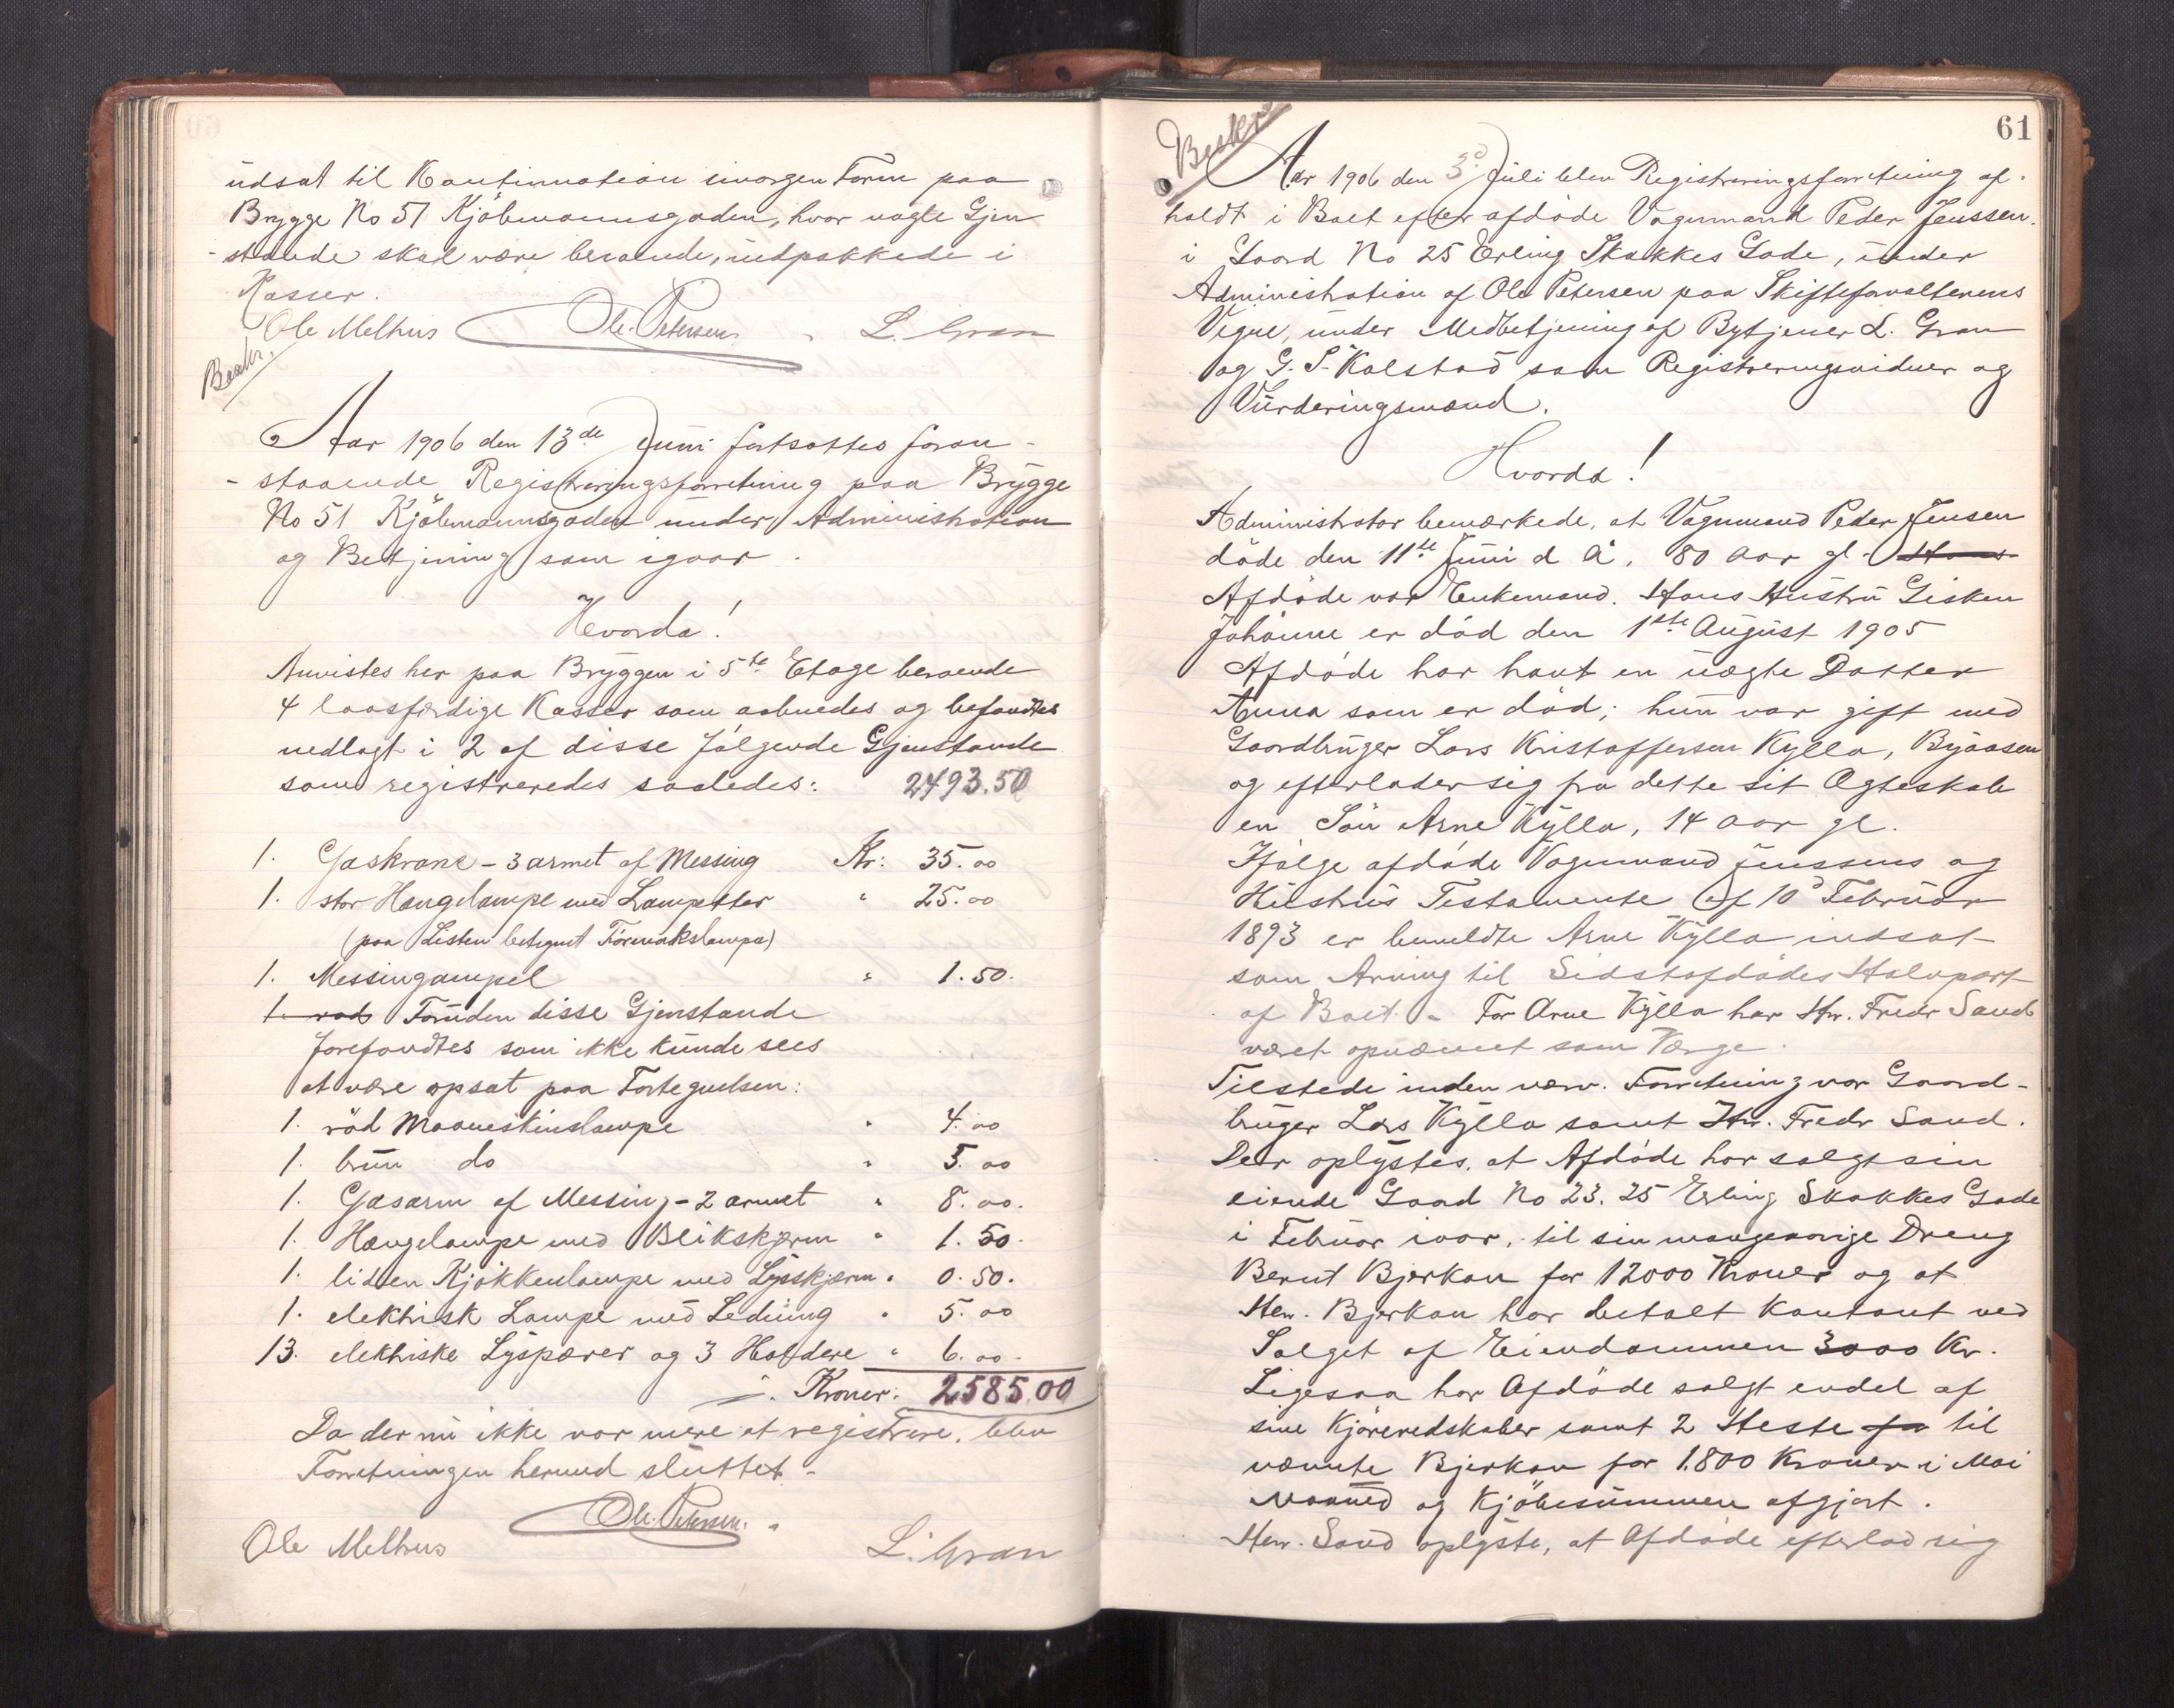 udsat til Kontinuation imorgen Form paa
Brygge No 51 Kjöbmannsgaden, hvor nogle Gjen
-stande skal være beroende, indpakkede i
Kasser.
Ole Melhus Ole Petersen. L. Gran
Beskr.
Aar 1906 den 13de Juni fortsattes foran-
-staaende Registreringsforretning paa Brygge
No 51 Kjöbmannsgaden under Administration
og Betjening som igaar.
Hvorda!
Anvistes her paa Bryggen i 5te Etage beroende
4 laasfærdige Kasser som aabnedes og befandtes
nedlagt i 2 af disse følgende Gjenstande
som registreredes saaledes: 2493.50
1. Gaskrane - 3 armet af Messing Kr: 35.00
1. stor Hængelampe med Lampetter " 25.00
(paa Listen betegnet Formakslampe)
1. Messingampel " 1.50.
1. rød Foruden disse Gjenstande
forefandtes som ikke kunde sees
at være opsat paa Fortegnelsen:
1. röd Maaneskinslampe " 4.00
1. brun do " 5.00
1. Gasarm af Messing - 2 armet " 8.00.
1. Hængelampe med Blikskjærm " 1.50.
1. liden Kjökkenlampe med Lysskjærm " 0.50.
1. elektrisk Lampe med Ledning " 5.00
13. elektriske Lyspærer og 3 Holdere " 6.00.
Kroner: 2585.00
Da der nu ikke var mere at registrere, blev
Forretningen hermed sluttet.
Ole Petersen.
Ole Melhus L. Gran
61
Beskr
Aar 1906 den 3d Juli blev Registreringsforretning af-
holdt i Boet efter afdöde Vognmand Peder Jenssen.
i Gaard No 25 Erling Skakkes Gade, under
Administration af Ole Petersen paa Skifteforvalterens
Vegne, under Medbetjening af Bytjener L. Gran
og G. S. Kolstad som Registreringsvidner og
Vurderingsmænd.
Hvorda!
Administrator bemærkede, at Vognmand Peder Jensen
döde den 11te Juni d A. 80 Aar gl. Hans
Afdöde var Enkemand. Hans Hustru Gisken
Johanne er död den 1ste August 1905
Afdöde har havt en uægte Datter
Anna som er död; hun var gift med
Gaardbruger Lars Kristoffersen Kylla, Byaasen
og efterlader sig fra dette sit Ægteskab
en Sön Arne Kylla, 14 Aar gl.
Ifölge afdöde Vognmand Jenssens og
Hustrus Testamente af 10d Februar
1893 er bemeldte Arne Kylla indsat
som Arving til Sidstafdödes Halvpart
af Boet. - For Arne Kylla har Hr. Fredr Sand
været opnævnt som Værge.
Tilstede under nærv. Forretning var Gaard-
bruger Lars Kylla samt Hr. Fredr Sand.
Der oplystes, at Afdöde har solgt sin
eiende Gaard No 23. 25 Erling Skakkes Gade
i Februar iaar, til sin mangeaarige Dreng
Bernt Bjerkan for 12000 Kroner og at
Herr. Bjerkan har betalt kontant ved
Salget af Eiendommen 3000 Kr.
Ligesaa har Afdöde solgt endel af
sine Kjöreredskaber samt 2 Heste for til
nævnte Bjerkan for 1.800 Kroner i Mai
Maaned og Kjöbesummen afgjort.
Herr. Sand oplyste, at Afdöde efterlod sig